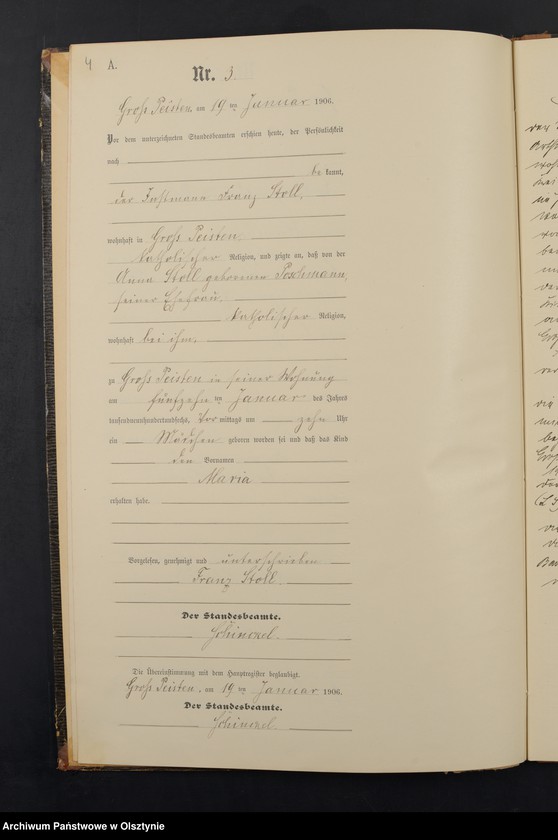 4 A.
Nr. 3.
Groß Peisten, am 19 ten Januar 1906.
Vor dem unterzeichneten Standesbeamten erschien heute, der Persönlichkeit
nach
be kannt,
der Instmann Franz Stoll,
wohnhaft in Groß Peisten
katholischer Religion, und zeigte an, daß von der
Anna Stoll geborenen Poschmann,
seiner Ehefrau,
katholischer Religion,
wohnhaft bei ihm,
zu Groß Peisten in seiner Wohnung
am fünfzehn ten Januar des Jahres
tausendneunhundertundsechs, Vor mittags um zehn Uhr
ein Mädchen geboren worden sei und daß das Kind
den Vornamen
Maria
erhalten habe.
Vorgelesen, genehmigt und unterschrieben
Franz Stoll
Der Standesbeamte.
Schinckel
Die Übereinstimmung mit dem Hauptregister beglaubigt.
Groß Peisten, am 19 ten Januar 1906.
Der Standesbeamte.
Schinckel
Archiwum Państwowe w Olsztynie